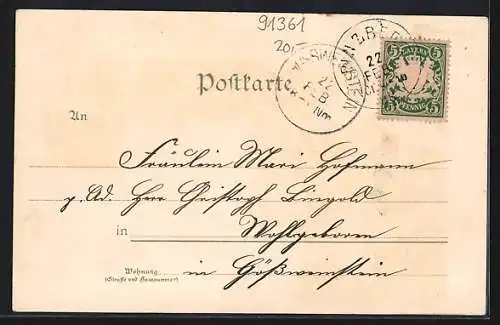 91361
20
Postkarte.
An
Fräulein Mari Hofmann
p. Ad. Herr Christoph Bingold
in Wohlgeboren
Wohnung
(Strasse und Hausnummer)
in Gößweinstein
BAYERN
5 5
PFENNIG
22
FEB